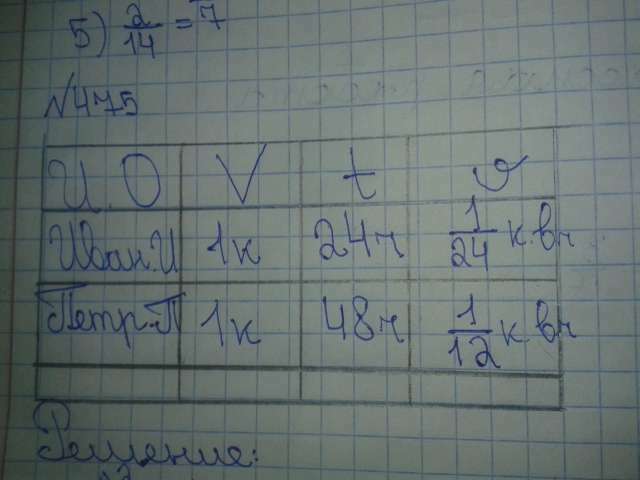 5) 2/14 = 7
№475
И.О V t v
Иван.И 1к 24ч 1/24 к.вч
Петр.П 1к 48ч 1/12 к.вч
Решение: